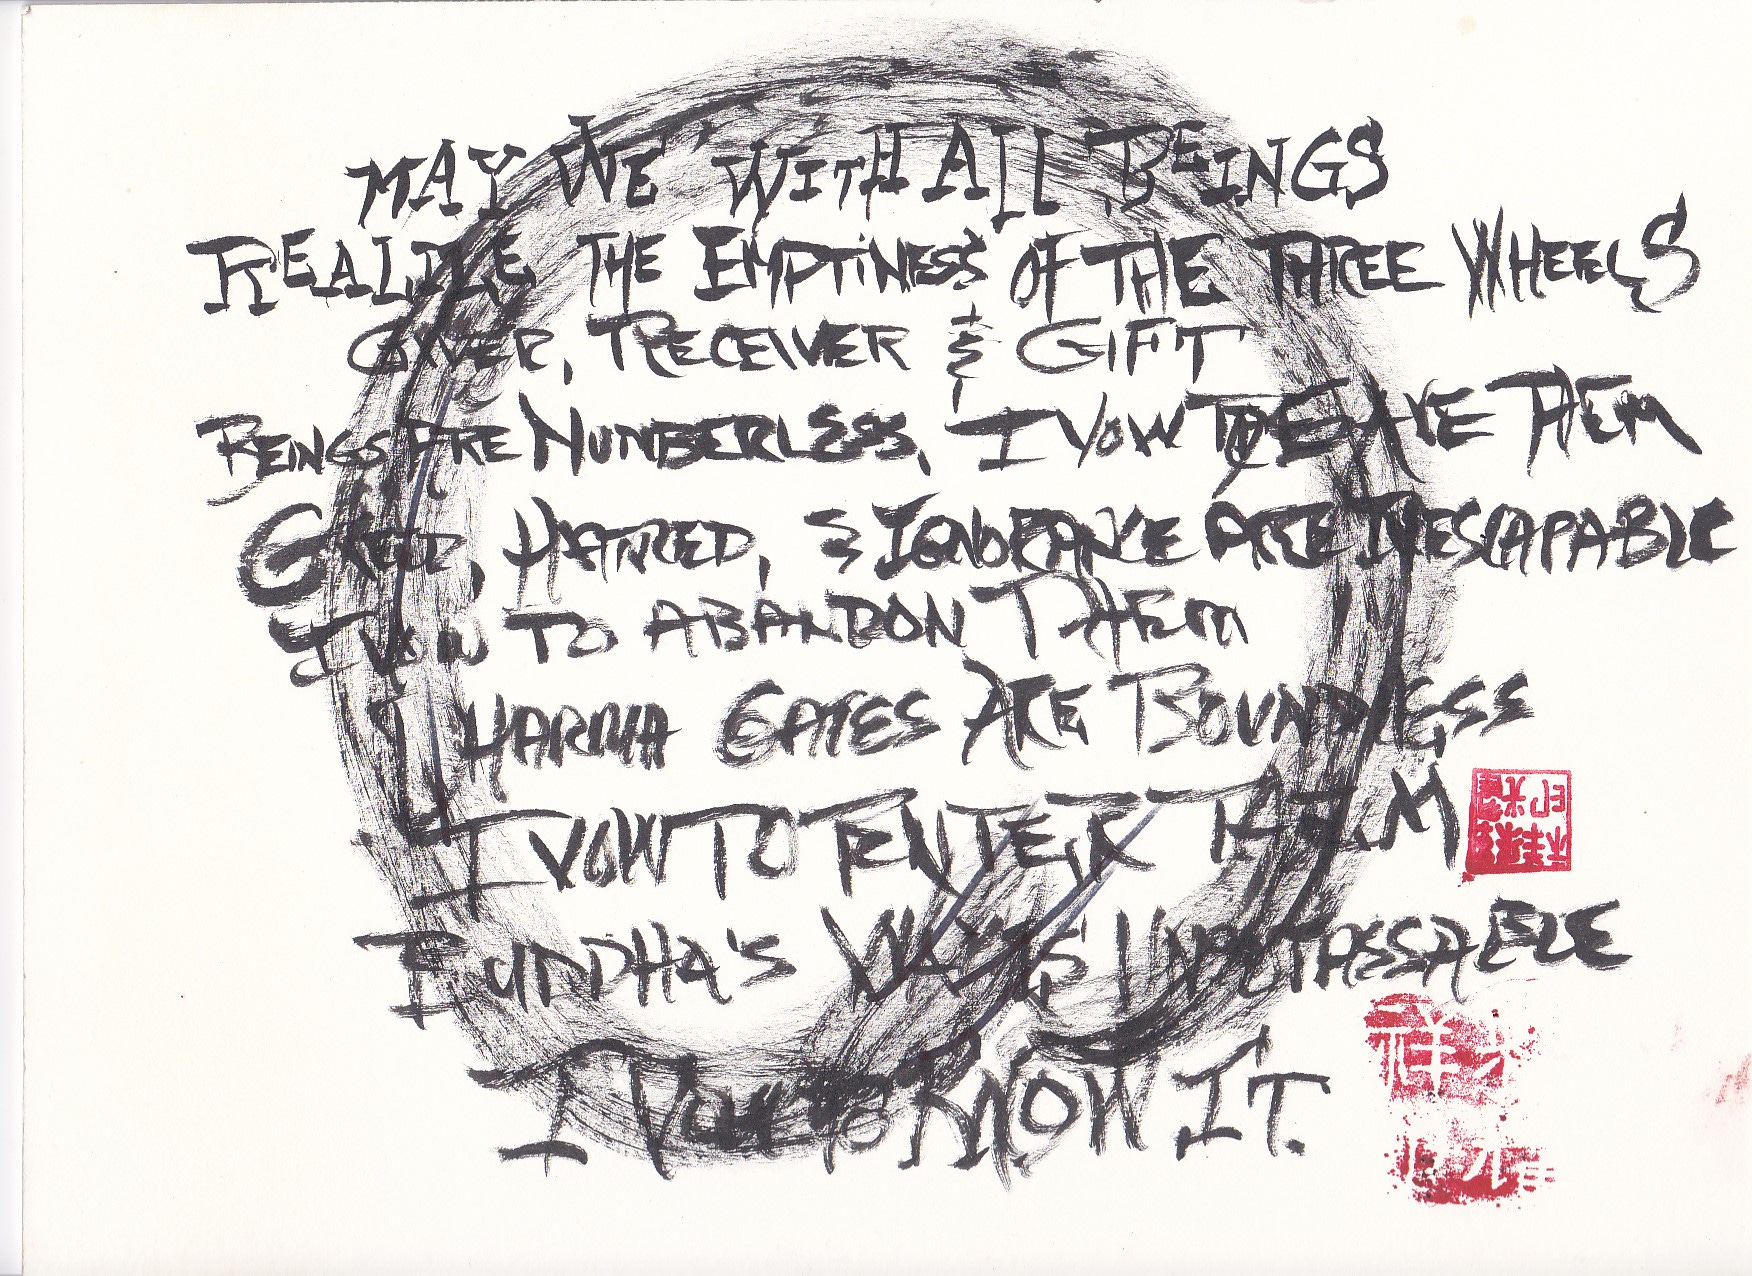 MAY WE WITH ALL BEINGS
REALIZE THE EMPTINESS OF THE THREE WHEELS
GIVER, RECEIVER & GIFT
BEINGS ARE NUMBERLESS, I VOW TO SAVE THEM
GREED, HATRED, & IGNORANCE ARE INESCAPABLE
I VOW TO ABANDON THEM
DHARMA GATES ARE BOUNDLESS
I VOW TO ENTER THEM
BUDDHA'S WAY IS UNSURPASSABLE
I VOW TO KNOW IT.
祥